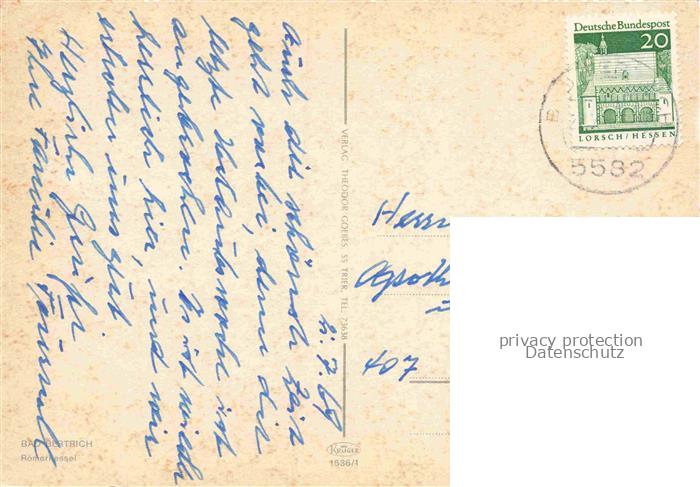 Deutsche Bundespost
20
LORSCH/HESSEN
5582
21.7.69
Auch die schönste Zeit
geht vorbei, denn die
letzte Urlaubswoche ist
angebrochen. Es ist wieder
herrlich hier, und wir
erholen uns gut
Herzliche Grüße
Ihre Familie
VERLAG THEODOR GOEBEL, 55 TRIER, TEL. 73638
Herrn
407
privacy protection
Datenschutz
BAD BERTRICH
Römerkessel
KRÜGER
1536/1